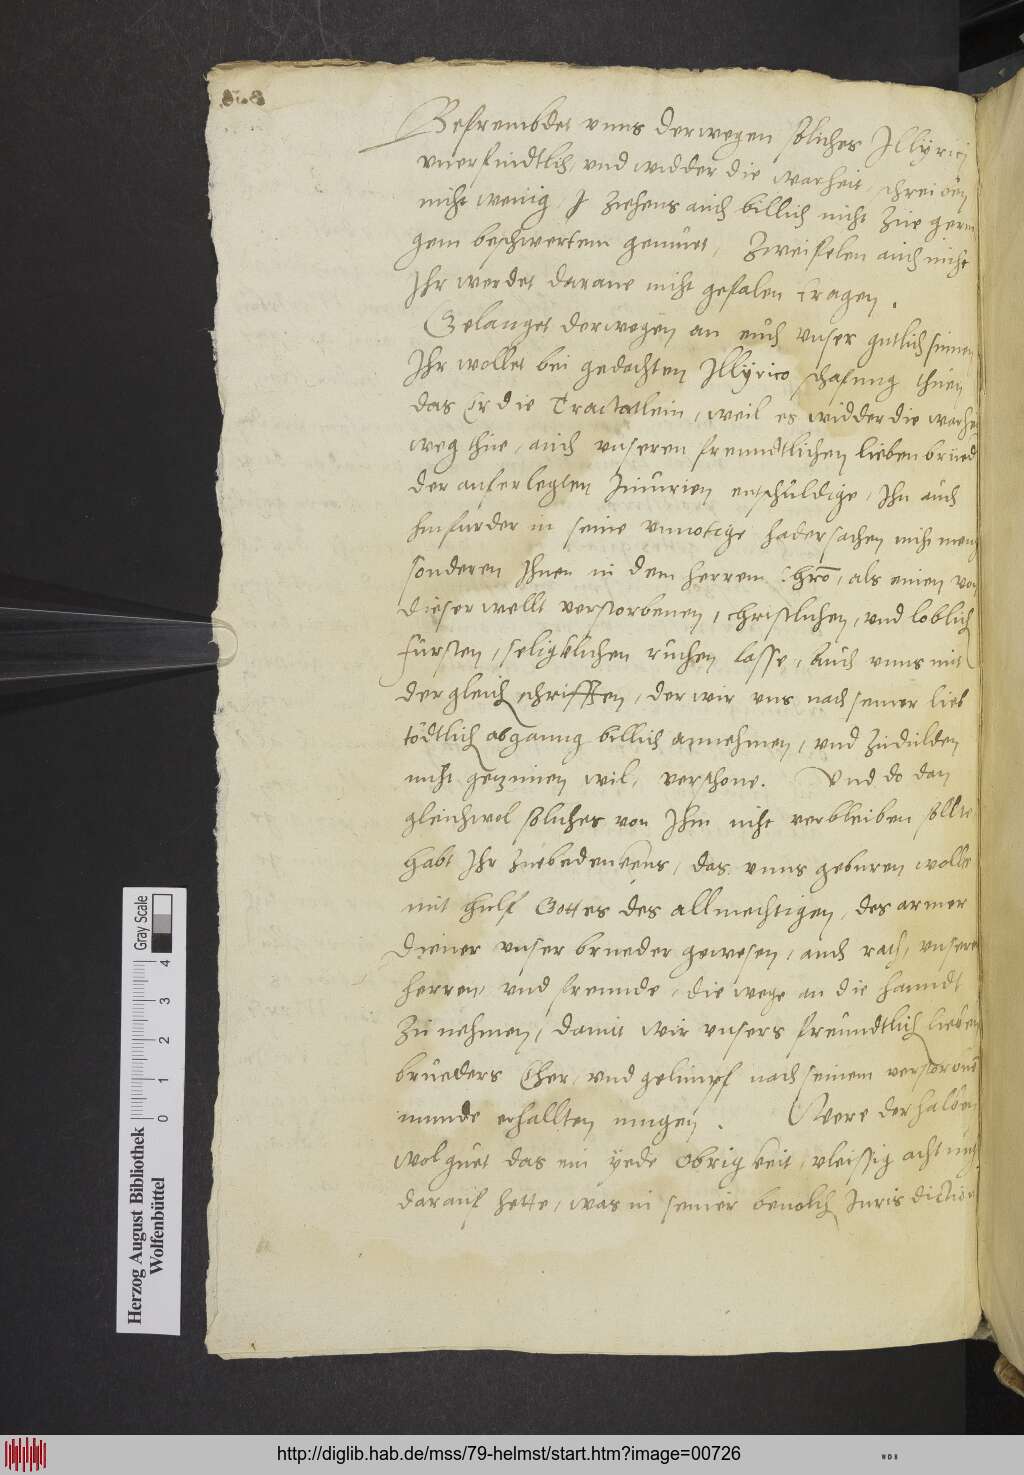 Befrembdet vnns derwegen solches Illÿrici
vnerfindtlich, vnd widder die warheit, schreiben
nicht wenig, Ziehens auch billich nicht Zue gerin
gem beschwertem gemuet, Zweifelen auch nicht
Ihr werdet darane nicht gefalen tragen.
Gelanget derwegen an euch vnser gutlich sinnen
Ihr wollet bei gedachten Illÿrico schafung thuen
das Er die Tractatlein, weil es widder die warhei
weg thue, auch vnseren freundtlichen lieben brued
der auferlegten Iniurien entschuldige, Ihn auch
hinfurder in seine vnnotige hadersachen nicht meng
sonderen Ihnen in dem herren Chro, als einen von
dieser wellt verstorbenen, christlichen, vnd loblich
fürsten, seligklichen ruhen lasse, Auch vnns mit
dergleich schrifften, der wir vns nach seiner lieb
tödtlich abganng billich annehmen, vnd Zudulden
nicht gezimen wil, verschone. Vnd do dan
gleichwol solches von Ihm nicht verbleiben sollte
habt Ihr Zuebedenkens, das vnns geburen wolle
mit hulf Gottes des allmechtigen, des armer
diener vnser brueder gewesen, auch rath, vnsere
herren, vnd freunde, die wege an die hanndt
Zu nehmen, damit wir vnsers freundtlich lieben
brueders Eher, vnd gelimpf nach seinem verstorben
munde erhallten mugen. Were derhalben
wol guet das ein ÿede Obrigkeit, vleissig achtung
darauf hette, was in seiner beuolch Jurisdiction
Herzog August Bibliothek
Wolfenbüttel
Gray Scale
0 1 2 3 4
http://diglib.hab.de/mss/79-helmst/start.htm?image=00726